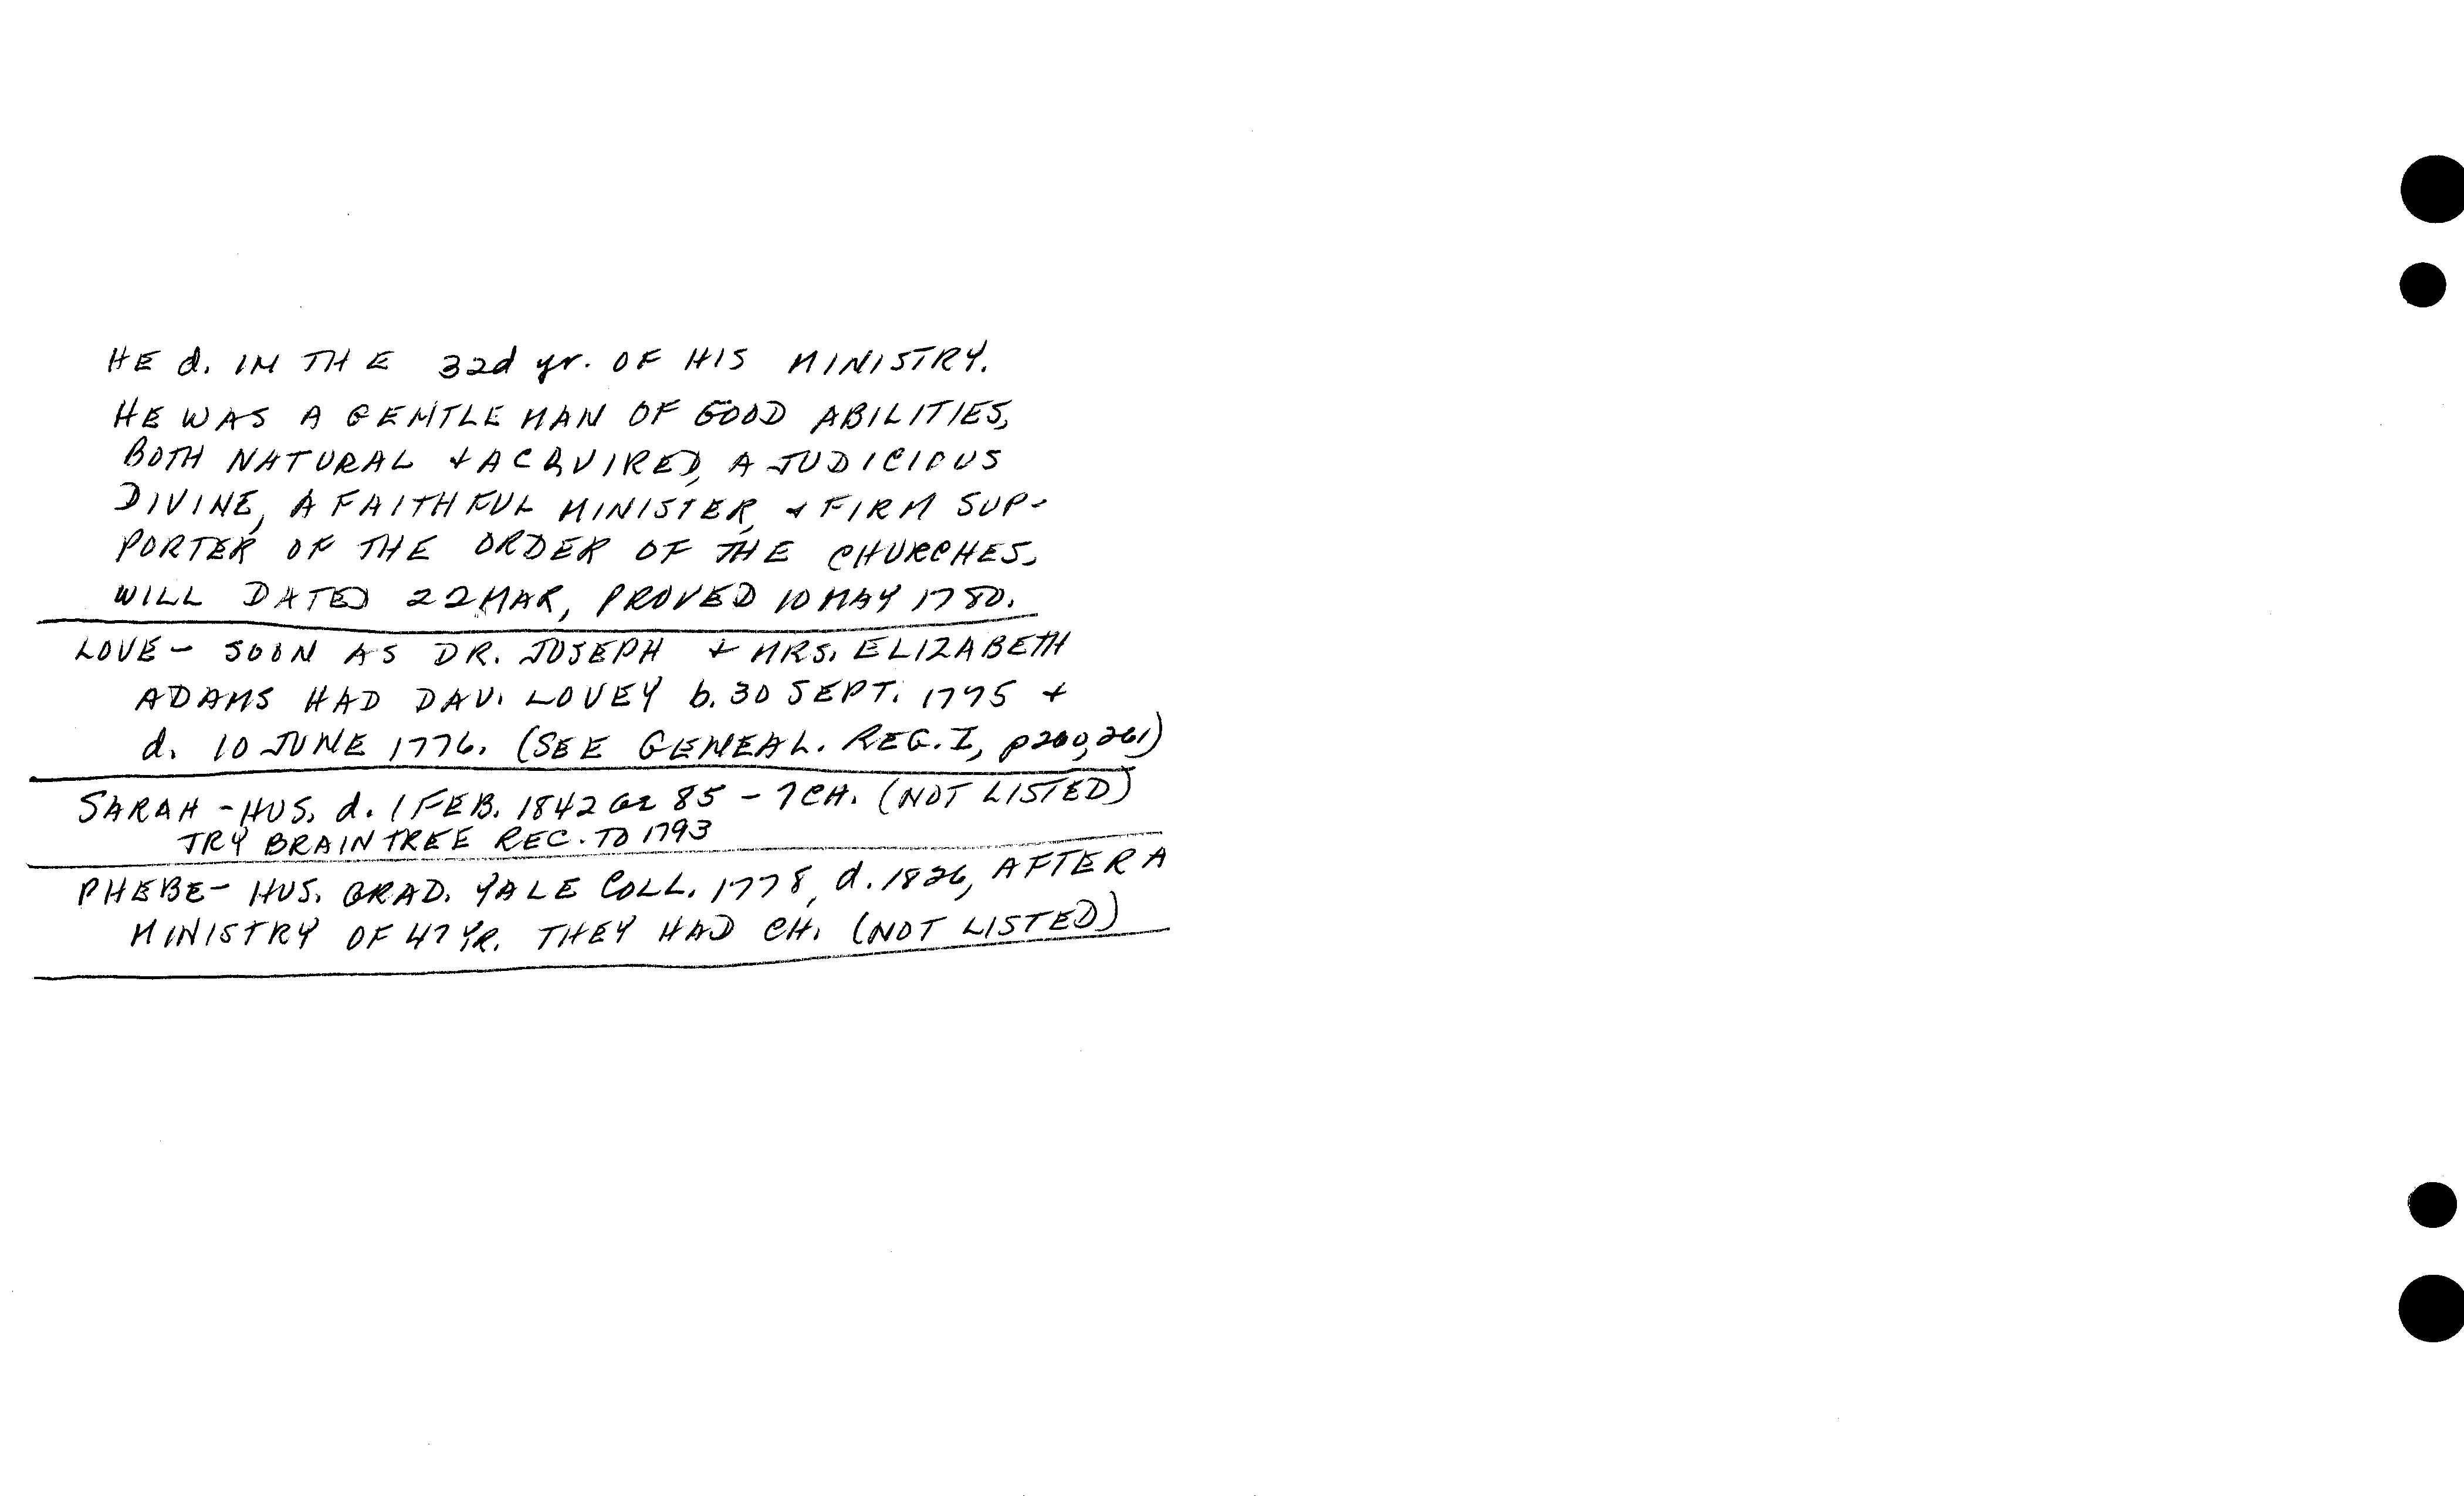 HE d. IN THE 32d yr. OF HIS MINISTRY.
HE WAS A GENTLEMAN OF GOOD ABILITIES,
BOTH NATURAL + ACQUIRED, A JUDICIOUS
DIVINE, A FAITHFUL MINISTER, + FIRM SUP-
PORTER OF THE ORDER OF THE CHURCHES.
WILL DATED 22 MAR, PROVED 10 MAY 1780.
LOVE - SOON AS DR. JOSEPH + MRS. ELIZABETH
ADAMS HAD DAU. LOVEY b. 30 SEPT. 1775 +
d. 10 JUNE 1776. (SEE GENEAL. REG. I, p260,261)
SARAH - HUS. d. 1 FEB. 1842 ae 85 - 7 CH. (NOT LISTED)
TRY BRAINTREE REC. TO 1793
PHEBE - HUS. GRAD. YALE COLL. 1778, d. 1826, AFTER A
MINISTRY OF 47 YR. THEY HAD CH. (NOT LISTED)